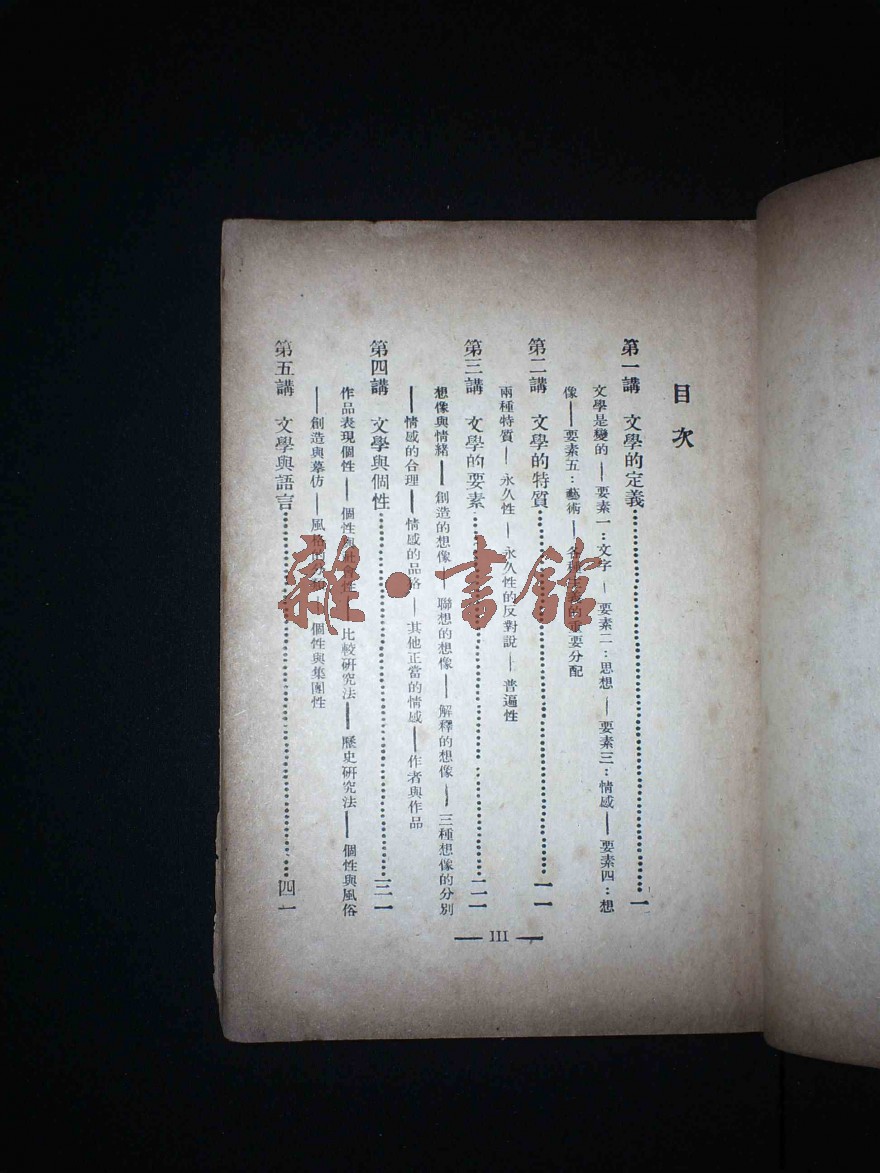 目次
第一講　文學的定義……一
文學是變的——要素一：文字——要素二：思想——要素三：情感——要素四：想
像——要素五：藝術——各種定義的重要分配
第二講　文學的特質……一一
兩種特質——永久性——永久性的反對說——普遍性
第三講　文學的要素……二一
想像與情緒——創造的想像——聯想的想像——解釋的想像——三種想像的分別
——情感的合理——情感的品格——其他正當的情感——作者與作品
第四講　文學與個性……三一
作品表現個性——個性與 性——比較研究法——歷史研究法——個性與風俗
——創造與摹仿——風格的 ——個性與集團性
第五講　文學與語言……四一
— III —
雜·書館